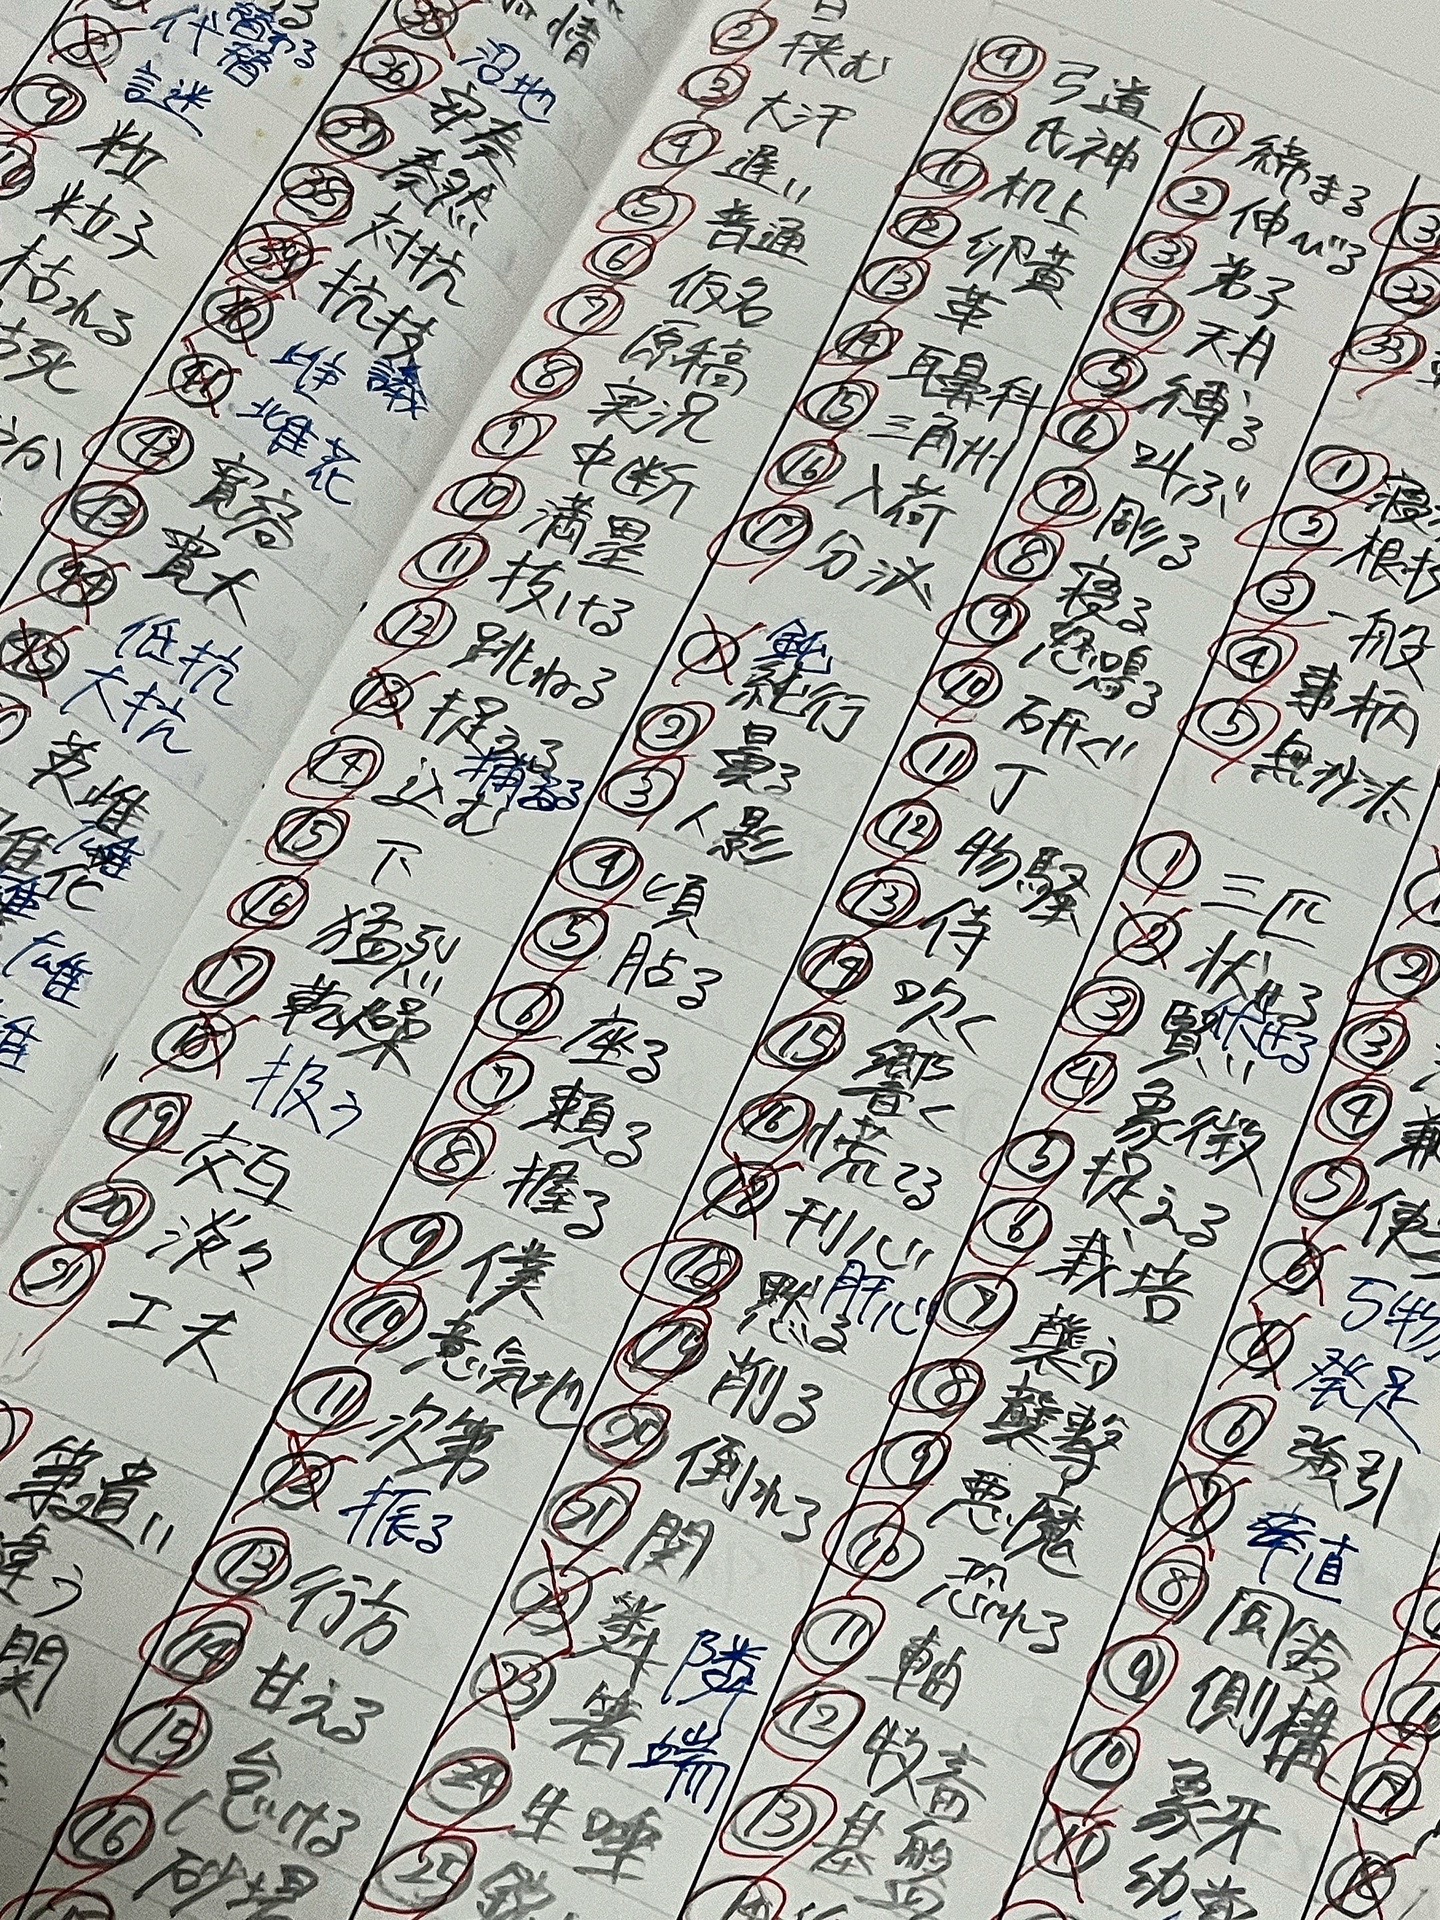 替わる
⑧ 代替
謎
⑨ 粒
粒子
枯れる
㉟ 沼地
㊱ 演奏
㊲ 奏然
㊳ 対抗
㊴ 抗技
㊵
㊶ 雄花
㊷ 寛容
㊸ 寛大
㊹ 低抗
㊺ 大抗
英雄
② 挟む
③ 大汗
④ 遅い
⑤ 普通
⑥ 仮名
⑦ 原稿
⑧ 実況
⑨ 中断
⑩ 満塁
⑪ 抜ける
⑫ 跳ねる
⑬ 捕える
⑭ 込む
⑮ 下
⑯ 猛烈
⑰ 乾燥
⑱ 扱う
⑲ 交互
⑳ 淡々
㉑ 工夫
筆遣い
違う
関
⑨ 弓道
⑩ 氏神
⑪ 机上
⑫ 卵黄
⑬ 革
⑭ 耳鼻科
⑮ 三角州
⑯ 入荷
⑰ 分泌
① 鈍行
② 曇る
③ 人影
④ 頃
⑤ 貼る
⑥ 座る
⑦ 頼る
⑧ 握る
⑨ 僕
⑩ 意気地
⑪ 次第
⑫ 振る
⑬ 行方
⑭ 甘える
⑮ 怠ける
⑯ 砂場
① 締まる
② 伸びる
③ 弟子
④ 天丼
⑤ 縛る
⑥ 叫ぶ
⑦ 彫る
⑧ 寝る
⑨ 怒鳴る
⑩ 研ぐ
⑪ 丁
⑫ 物騒
⑬ 侍
⑭ 吹く
⑮ 響く
⑯ 慌てる
⑰ 刊心 肝心
⑱ 黙る
⑲ 削る
⑳ 倒れる
㉑ 関
㉒ 隣
㉓ 箸 端
㉔ 生唾
㉕
㉛
㉜
㉝
①
②
③ 一般
④ 事柄
⑤ 無沙汰
① 三匹
② 伏せる
③ 賢い
④ 象徴
⑤ 捉える
⑥ 栽培
⑦ 襲う
⑧ 襲撃
⑨ 悪魔
⑩ 恐れる
⑪ 軸
⑫ 牧畜
⑬ 基盤
②
③
④
⑤
⑥
発足
⑥ 強引
⑦ 率直
⑧ 風鈴
⑨ 側構
⑩ 象牙
⑪